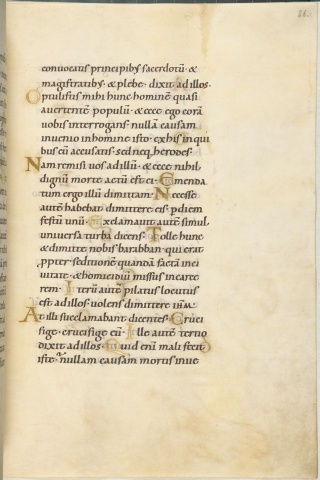 conuocatis principib; sacerdotū · &
magistratib; · & plebe · dixit ad illos ·
Optulistis mihi hunc hominē quasi
auertentē populū · & ecce ego corā
uobis interrogans · nullā causam
inuenio in homine isto · ex his in qui
bus eū accusatis · sed neq; herodes ·
Nam remisi uos ad illū · & ecce nihil
dignū morte actū est ei · Emenda
tum ergo illū dimittam · Necesse
autē habebat dimittere eis p diem
festū unū · Exclamauit autē simul
uniuersa turba dicens · Tolle hunc
& dimitte nobis barabban · qui erat
ppter seditionē quandā factā in ci
uitate · & homicidiū missus in carce
rem · Iterū autē pilatus locutus
est ad illos · uolens dimittere ihm̄
At illi succlamabant dicentes · Cruci
fige · crucifige eū · Ille autē tertio
dixit ad illos · Quid enī mali fecit
iste · nullam causam mortis inue